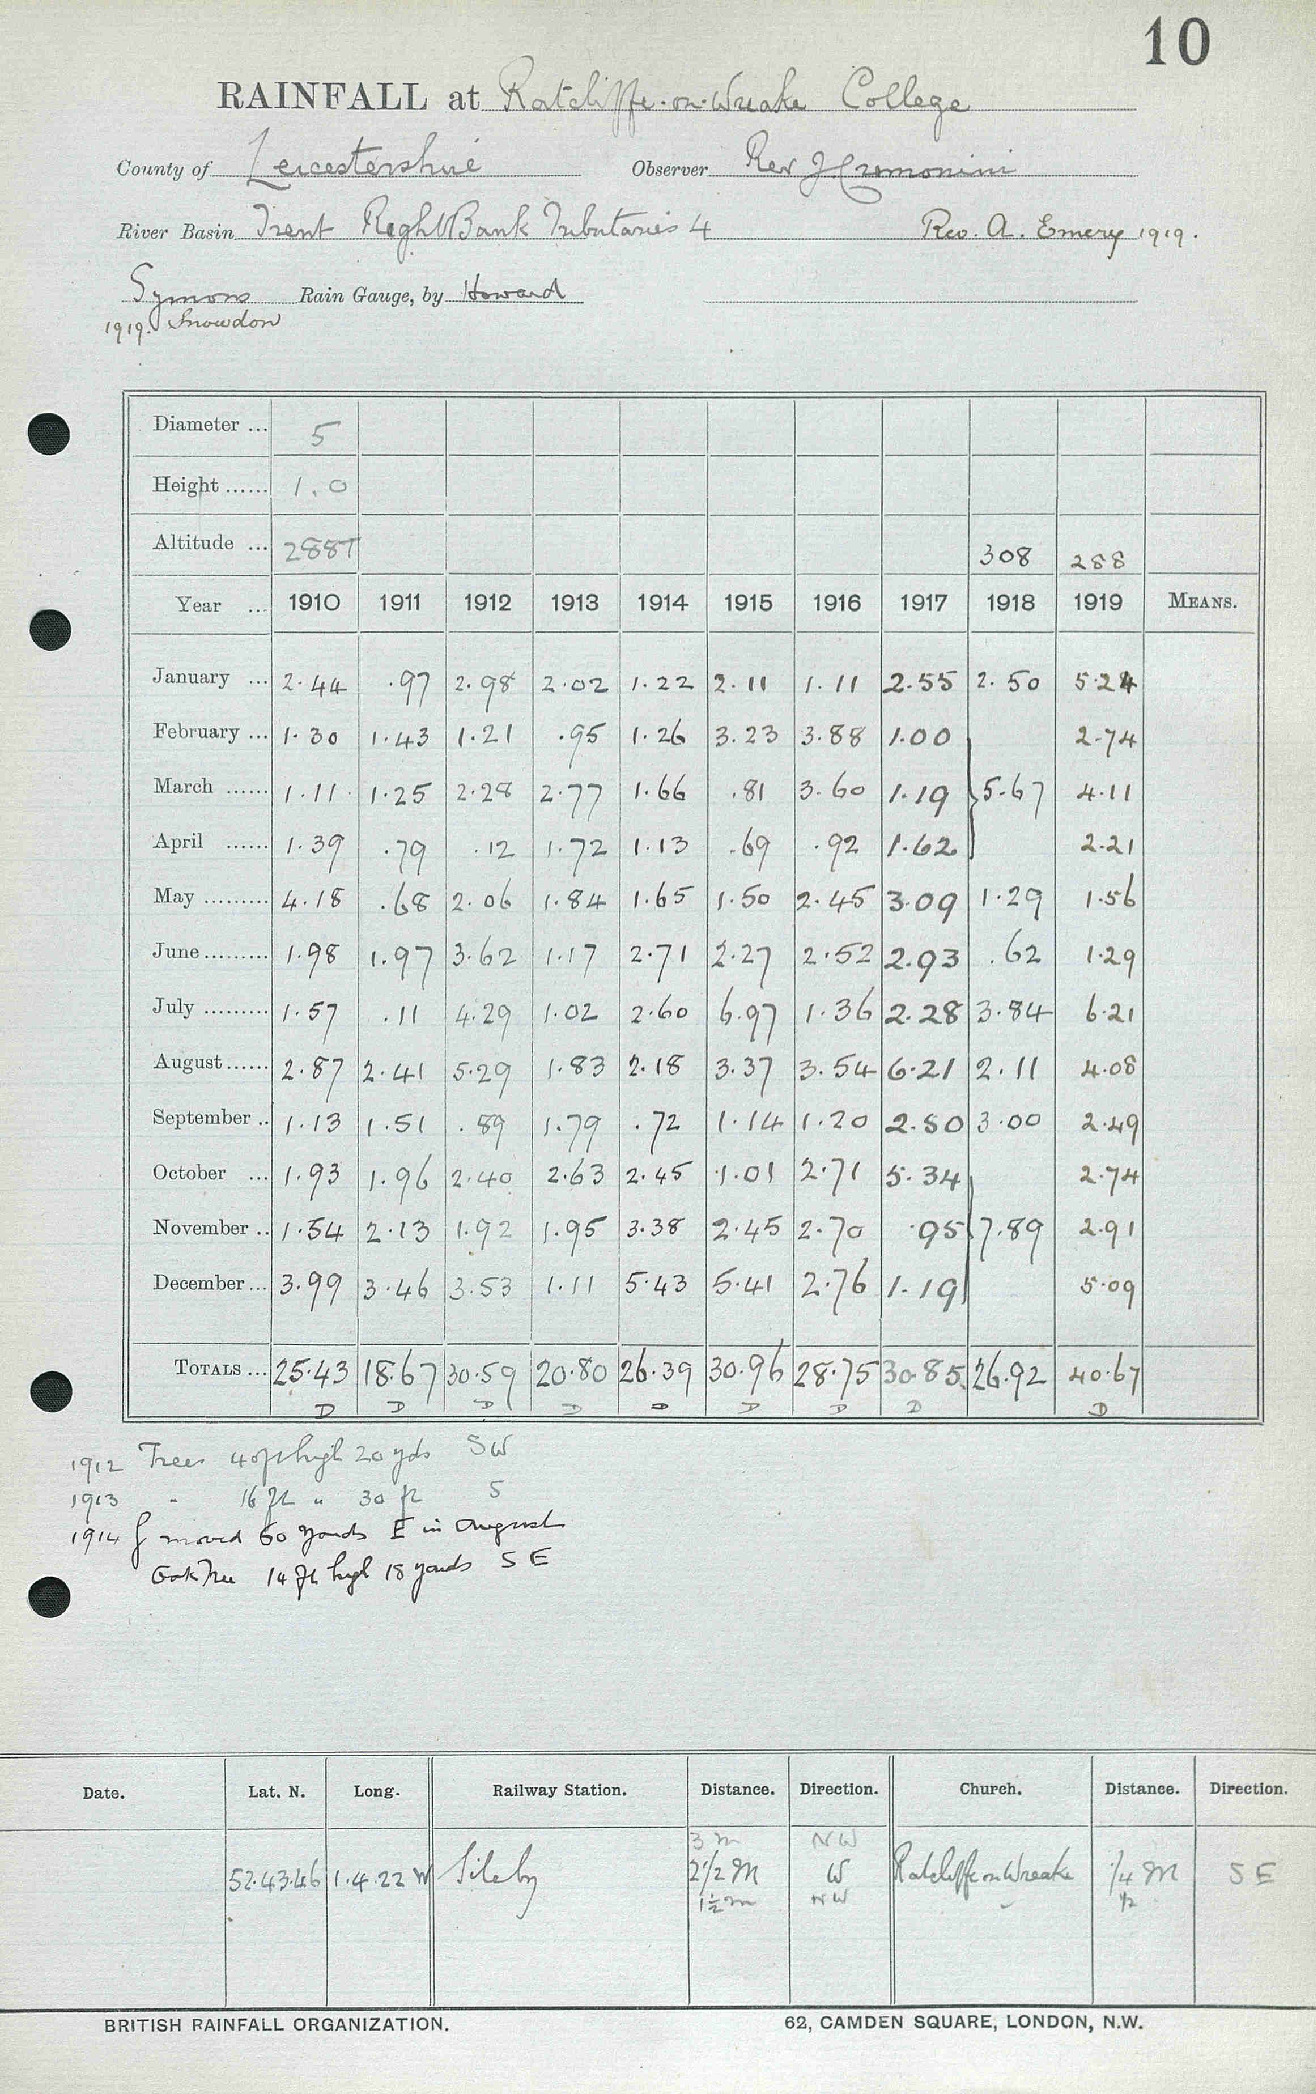 10
RAINFALL at Ratcliffe-on-Wreake College
County of Leicestershire Observer Rev J Cremonini
River Basin Trent Right Bank Tributaries 4 Rev. A. Emery 1919.
Symons Rain Gauge, by Howard
1919. Snowdon
Diameter ... 5
Height ...... 1.0
Altitude ... 288T 308 288
Year ... 1910 1911 1912 1913 1914 1915 1916 1917 1918 1919 MEANS.
January ... 2.44 .97 2.98 2.02 1.22 2.11 1.11 2.55 2.50 5.24
February ... 1.30 1.43 1.21 .95 1.26 3.23 3.88 1.00 2.74
March ...... 1.11 1.25 2.28 2.77 1.66 .81 3.60 1.19 5.67 4.11
April ...... 1.39 .79 .12 1.72 1.13 .69 .92 1.62 2.21
May ......... 4.18 .68 2.06 1.84 1.65 1.50 2.45 3.09 1.29 1.56
June ......... 1.98 1.97 3.62 1.17 2.71 2.27 2.52 2.93 .62 1.29
July ......... 1.57 .11 4.29 1.02 2.60 6.97 1.36 2.28 3.84 6.21
August ...... 2.87 2.41 5.29 1.83 2.18 3.37 3.54 6.21 2.11 4.08
September .. 1.13 1.51 .89 1.79 .72 1.14 1.20 2.50 3.00 2.49
October ... 1.93 1.96 2.40 2.63 2.45 1.01 2.71 5.34 2.74
November .. 1.54 2.13 1.92 1.95 3.38 2.45 2.70 .95 7.89 2.91
December ... 3.99 3.46 3.53 1.11 5.43 5.41 2.76 1.19 5.09
TOTALS ... 25.43 18.67 30.59 20.80 26.39 30.96 28.75 30.85 26.92 40.67
D D D D D D D D D
1912 Trees 40ft high 20 yds SW
1913 " 16 ft " 30 ft S
1914 G moved 60 yards E in August
Oak Tree 14 ft high 18 yards SE
Date. Lat. N. Long. Railway Station. Distance. Direction. Church. Distance. Direction.
3 m NW
52.43.46 1.4.22 W Sileby 2 1/2 M W Ratcliffe on Wreake 1/4 M SE
1 1/2 m NW 1/2
BRITISH RAINFALL ORGANIZATION. 62, CAMDEN SQUARE, LONDON, N.W.